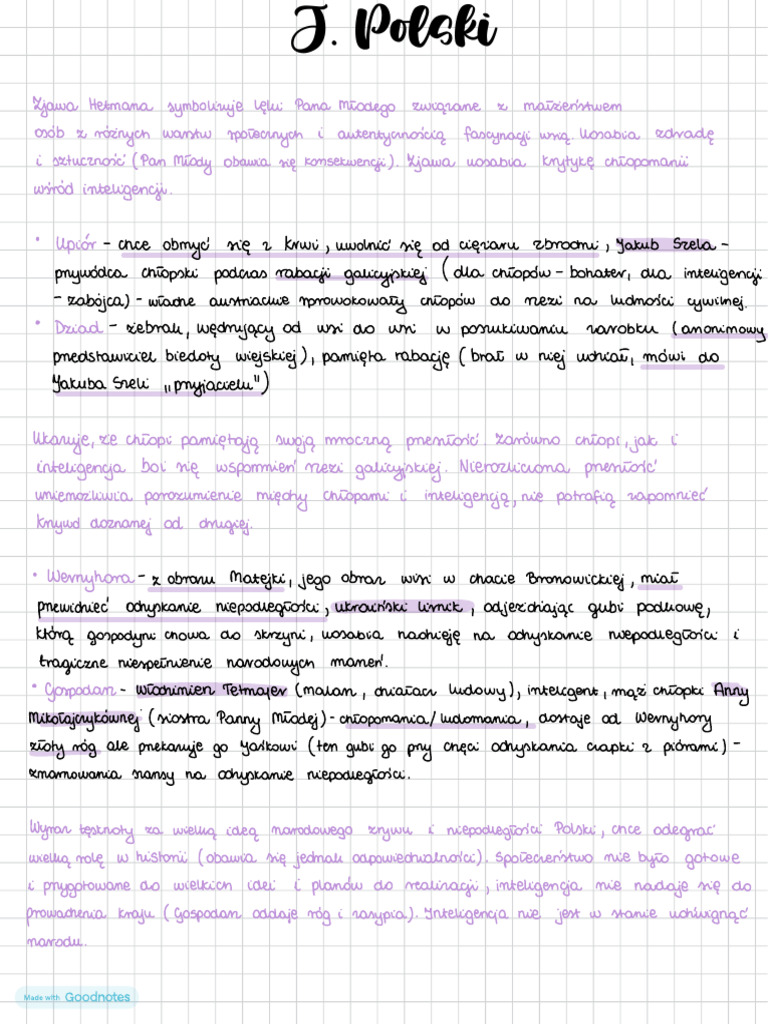 J. Polski
Zjawa Hetmana symbolizuje lęki Pana Młodego związane z małżeństwem
osób z różnych warstw społecznych i autentycznością fascynacji wsią. Uosabia zdradę
i sztuczność (Pan Młody obawia się konsekwencji). Zjawa uosabia krytykę chłopomanii
wśród inteligencji.
• Upiór - chce obmyć się z krwi, uwolnić się od ciężaru zbrodni, Jakub Szela -
przywódca chłopski podczas rabacji galicyjskiej (dla chłopów - bohater, dla inteligencji
- zabójca) - władze austriackie sprowokowały chłopów do rzezi na ludności cywilnej.
• Dziad - żebrak, wędrujący od wsi do wsi w poszukiwaniu zarobku (anonimowy
przedstawiciel biedoty wiejskiej), pamięta rabację (brał w niej udział, mówi do
Jakuba Szeli „przyjacielu")
Ukazuje, że chłopi pamiętają swoją mroczną przeszłość zarówno chłopi, jak i
inteligencja boi się wspomnień rzezi galicyjskiej. Nierozliczona przeszłość
uniemożliwia porozumienie między chłopami i inteligencją, nie potrafią zapomnieć
krzywd doznanej od drugiej.
• Wernyhora - z obrazu Matejki, jego obraz wisi w chacie Bronowickiej, miał
przewidzieć odzyskanie niepodległości, ukraiński lirnik, odjeżdżając gubi podkowę,
którą gospodyni chowa do skrzyni, uosabia nadzieję na odzyskanie niepodległości i
tragiczne niespełnienie narodowych marzeń.
• Gospodarz - Włodzimierz Tetmajer (malarz, działacz ludowy), inteligent, mąż chłopki Anny
Mikołajczykównej (siostra Panny Młodej) - chłopomania/ludomania, dostaje od Wernyhory
złoty róg ale przekazuje go Jaśkowi (ten gubi go przy chęci odzyskania czapki z piórami) -
zmarnowania szansy na odzyskanie niepodległości.
Wyraz tęsknoty za wielką ideą narodowego zrywu i niepodległości Polski, chce odegrać
wielką rolę w historii (obawia się jednak odpowiedzialności). Społeczeństwo nie było gotowe
i przygotowane do wielkich idei i planów do realizacji, inteligencja nie nadaje się do
prowadzenia kraju (Gospodarz oddaje róg i zasypia). Inteligencja nie jest w stanie udźwignąć
narodu.
Made with Goodnotes